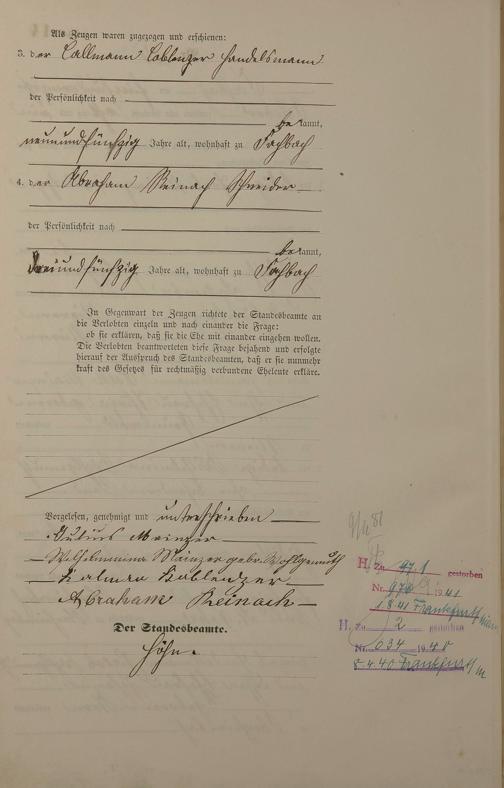 Als Zeugen waren zugezogen und erschienen:
3. der Callmann Coblenzer Handelsmann
der Persönlichkeit nach
bekannt,
neunundfünfzig Jahre alt, wohnhaft zu Fachbach
4. der Abraham Reinach Schneider
der Persönlichkeit nach
bekannt,
dreiundfünfzig Jahre alt, wohnhaft zu Fachbach
In Gegenwart der Zeugen richtete der Standesbeamte an
die Verlobten einzeln und nach einander die Frage:
ob sie erklären, daß sie die Ehe mit einander eingehen wollen.
Die Verlobten beantworteten diese Frage bejahend und erfolgte
hierauf der Ausspruch des Standesbeamten, daß er sie nunmehr
kraft des Gesetzes für rechtmäßig verbundene Eheleute erkläre.
Vorgelesen, genehmigt und unterschrieben
Julius Mainzer
Wilhelmina Mainzer gebr. Wohlgemuth
Kalman Koblenzer
Abraham Reinach
Der Standesbeamte.
Höhn.
H. Zu 1 gestorben
Nr. 1941
1 8 41 Frankfurt/Main
H. Zu 2 gestorben
Nr. 034 1940
5 4 40 Frankfurt/M